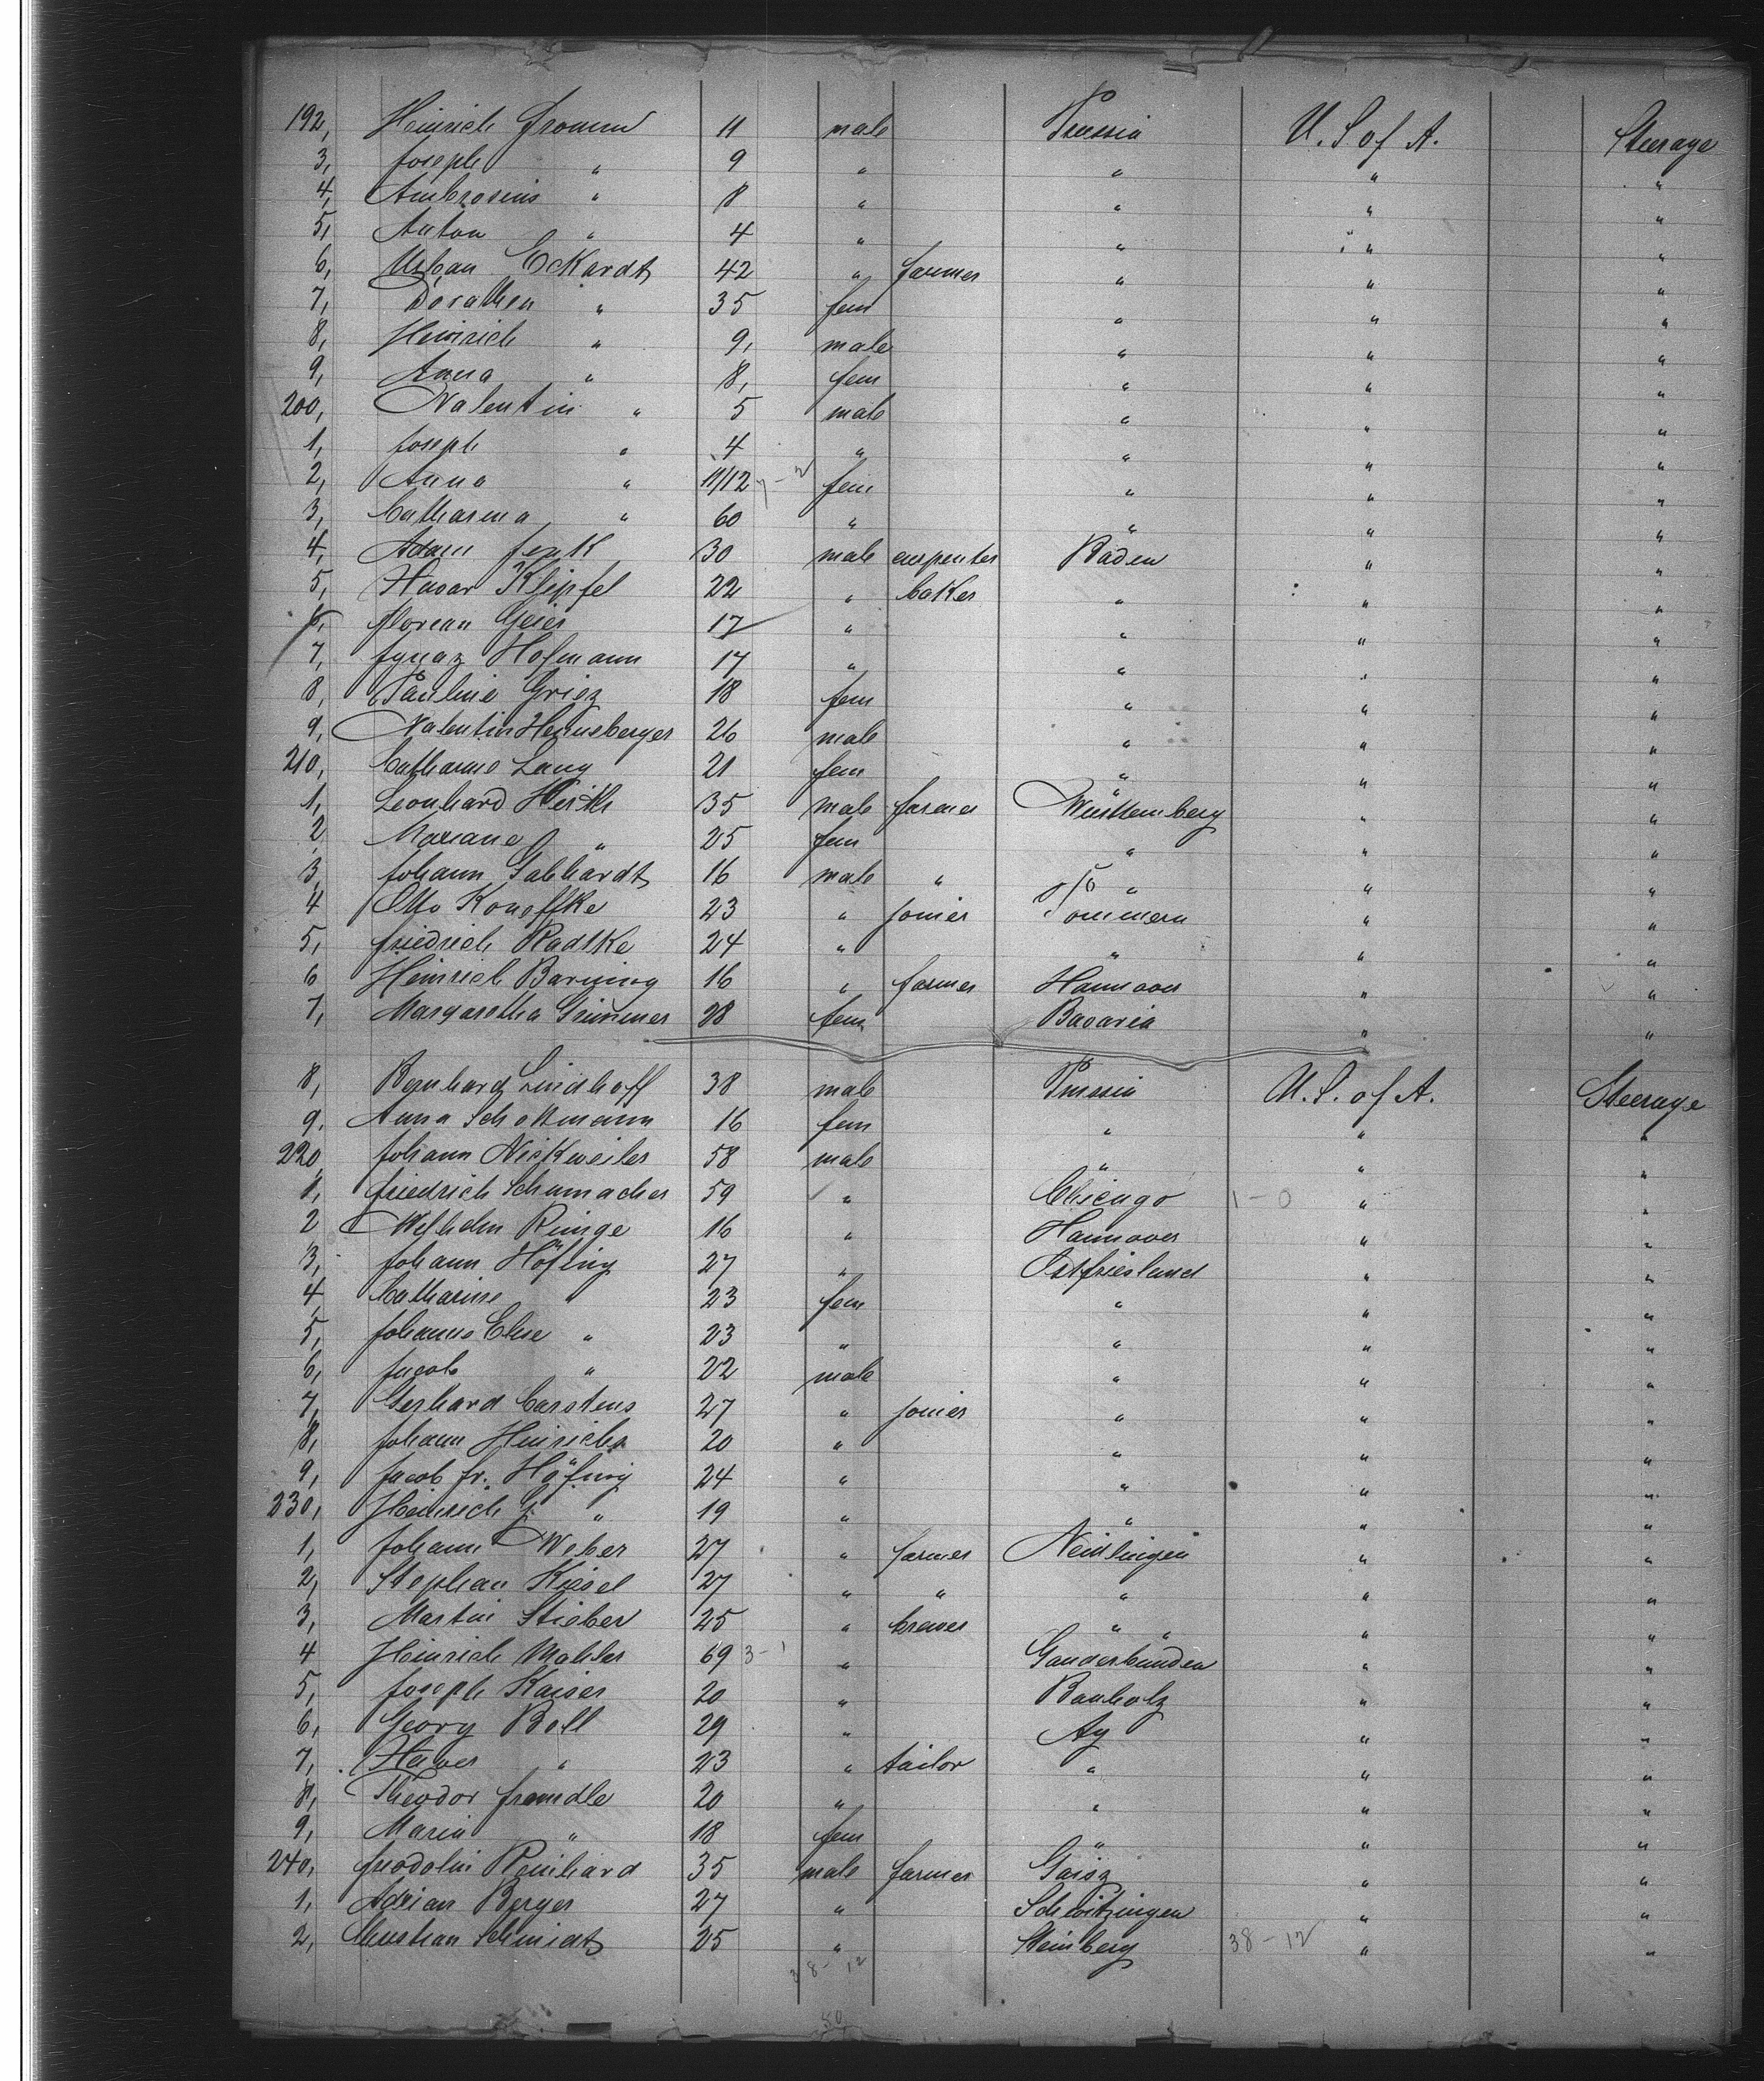 192, Heinrich Fromm 11 male Prussia U. S of A. Steerage
3, Joseph " 9 " " " "
4, Ambrosius " 8 " " " "
5, Anton " 4 " " " "
6, Urban Eckardt 42 " farmer " " "
7, Dorathea " 35 fem " " "
8, Heinrich " 9, male " " "
9, Anna " 8, fem " " "
200, Valentin " 5 male " " "
1, Joseph " 4 " " " "
2, Anna " 11/12 fem " " "
3, Catharina " 60 " " " "
4, Adam Fenk 30 male carpenter Baden " "
5, Klipfel 22 " baker " " "
6, Florian Geier 17 " " " "
7, Ignaz Hofmann 17 " " " "
8, Pauline Griez 18 fem " " "
9, Valentin Henneberger 26 male " " "
210, Catharine Lang 21 fem " " "
1, Leonhard Hirth 35 male farmer Württemberg " "
2 Mariane " 25 fem " " "
3, Johann Gabhardt 16 male " " " "
4 Otto Koneffke 23 " joiner Pommern " "
5, Friedrich Radtke 24 " " " "
6 Heinrich Barning 16 " farmer Hannover " "
7, Margaretha Grimmer 28 fem Bavaria " "
8, Bernhard Lindhoff 38 male Prussia U. S. of A. Steerage
9. Anna Schottmann 16 fem " " "
220, Johann Nickweiler 58 male " " "
1, Friedrich Schumacher 59 " Chicago 1-0 " "
2 Wilhelm Runge 16 " Hannover " "
3, Johann Höfing 27 " Ostfriesland " "
4, Catharine " 23 fem " " "
5, Johanne Elise " 23 " " " "
6, Jacob " 22 male " " "
7, Gerhard Carstens 27 " joiner " " "
8, Johann Hinrichs 20 " " " "
9, Jacob Fr. Höfing 24 " " " "
230, Heinrich G. " 19 " " " "
1, Johann Weber 27 " farmer " "
2, Stephan Kiesel 27 " " " " "
3, Martin Stieber 25 " brewer " " " "
4 Heinrich Mahler 69 3-1 " " "
5, Joseph Kaiser 20 " Bauholz " "
6, Georg Boll 29 " Ay " "
7, " 23 " tailor " " "
8, Theodor Fraundle 20 " " " "
9, Maria " 18 fem " " "
240, Fridolin Reinhard 35 male farmer Gaisz " "
1, Adrian Berger 27 " Schwitzingen " "
2, Christian Schmidt 25 " Steinberg 38-12 " "
38-12
50